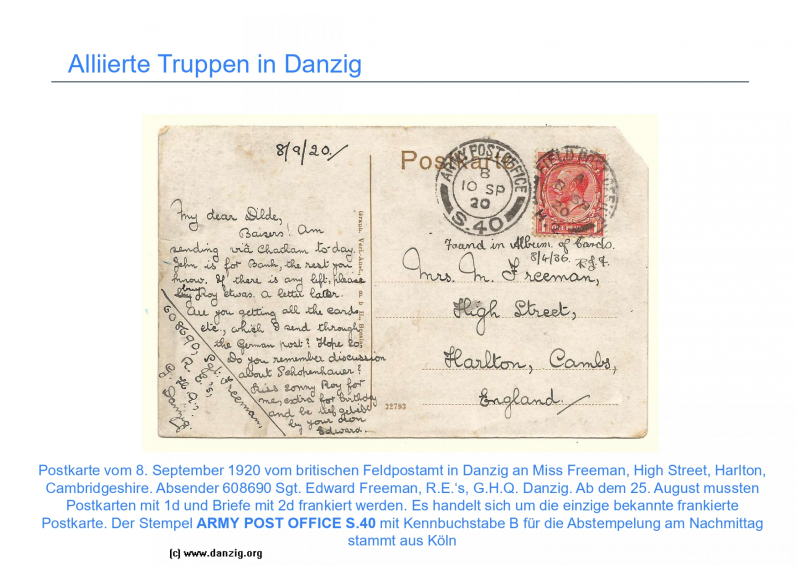 Alliierte Truppen in Danzig
8/9/20./
Postkarte
ARMY POST OFFICE
B
10 SP
20
S.40
FIELD POST OFFICE
My dear Dilde,
Baisers! Am
sending via Chatham to-day.
John is for Bank, the rest you
know. If there is any left, please
buy Roy etwas. a letter later.
Are you getting all the cards
etc., which I send through
the German post? Hope so.
Do you remember discussion
about Schopenhauer?
Kiss sonny Roy for
me, extra for birthday
and be
by your own
Edward.
608690, Sgt. Freeman,
R.E's,
G.H.Q.,
Danzig.
Found in Album of Cards.
8/4/36.
Mrs. M. Freeman,
High Street,
Harlton, Cambs,
England./
32793
Postkarte vom 8. September 1920 vom britischen Feldpostamt in Danzig an Miss Freeman, High Street, Harlton,
Cambridgeshire. Absender 608690 Sgt. Edward Freeman, R.E.‘s, G.H.Q. Danzig. Ab dem 25. August mussten
Postkarten mit 1d und Briefe mit 2d frankiert werden. Es handelt sich um die einzige bekannte frankierte
Postkarte. Der Stempel ARMY POST OFFICE S.40 mit Kennbuchstabe B für die Abstempelung am Nachmittag
stammt aus Köln
(c) www.danzig.org